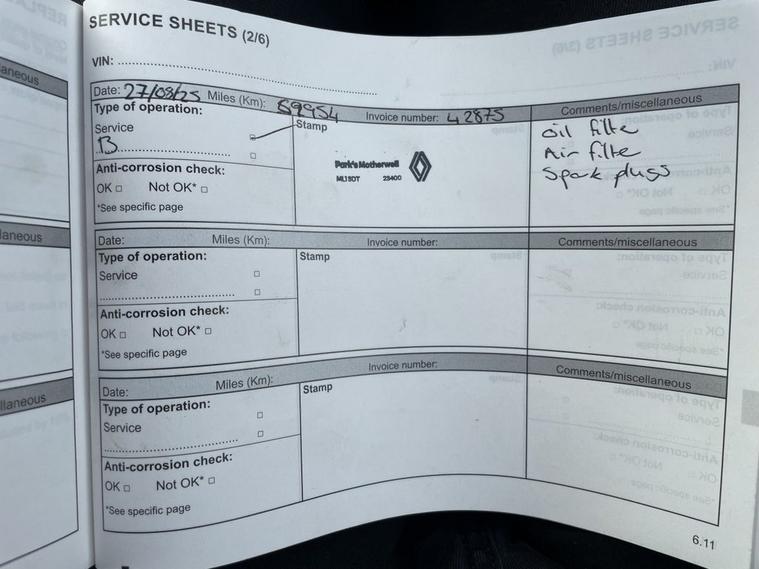 SERVICE SHEETS (2/6)
VIN:
Date: 27/08/25 Miles (Km): 69954 Invoice number: 42875 Comments/miscellaneous
Type of operation:
Service
B
Stamp
Park's Motherwell
ML1 5DT 23400
Oil filte
Air filte
Spark plugs
Anti-corrosion check:
OK Not OK*
*See specific page
Date: Miles (Km): Invoice number: Comments/miscellaneous
Type of operation:
Service
Stamp
Anti-corrosion check:
OK Not OK*
*See specific page
Date: Miles (Km): Invoice number: Comments/miscellaneous
Type of operation:
Service
Stamp
Anti-corrosion check:
OK Not OK*
*See specific page
6.11
aneous
laneous
llaneous